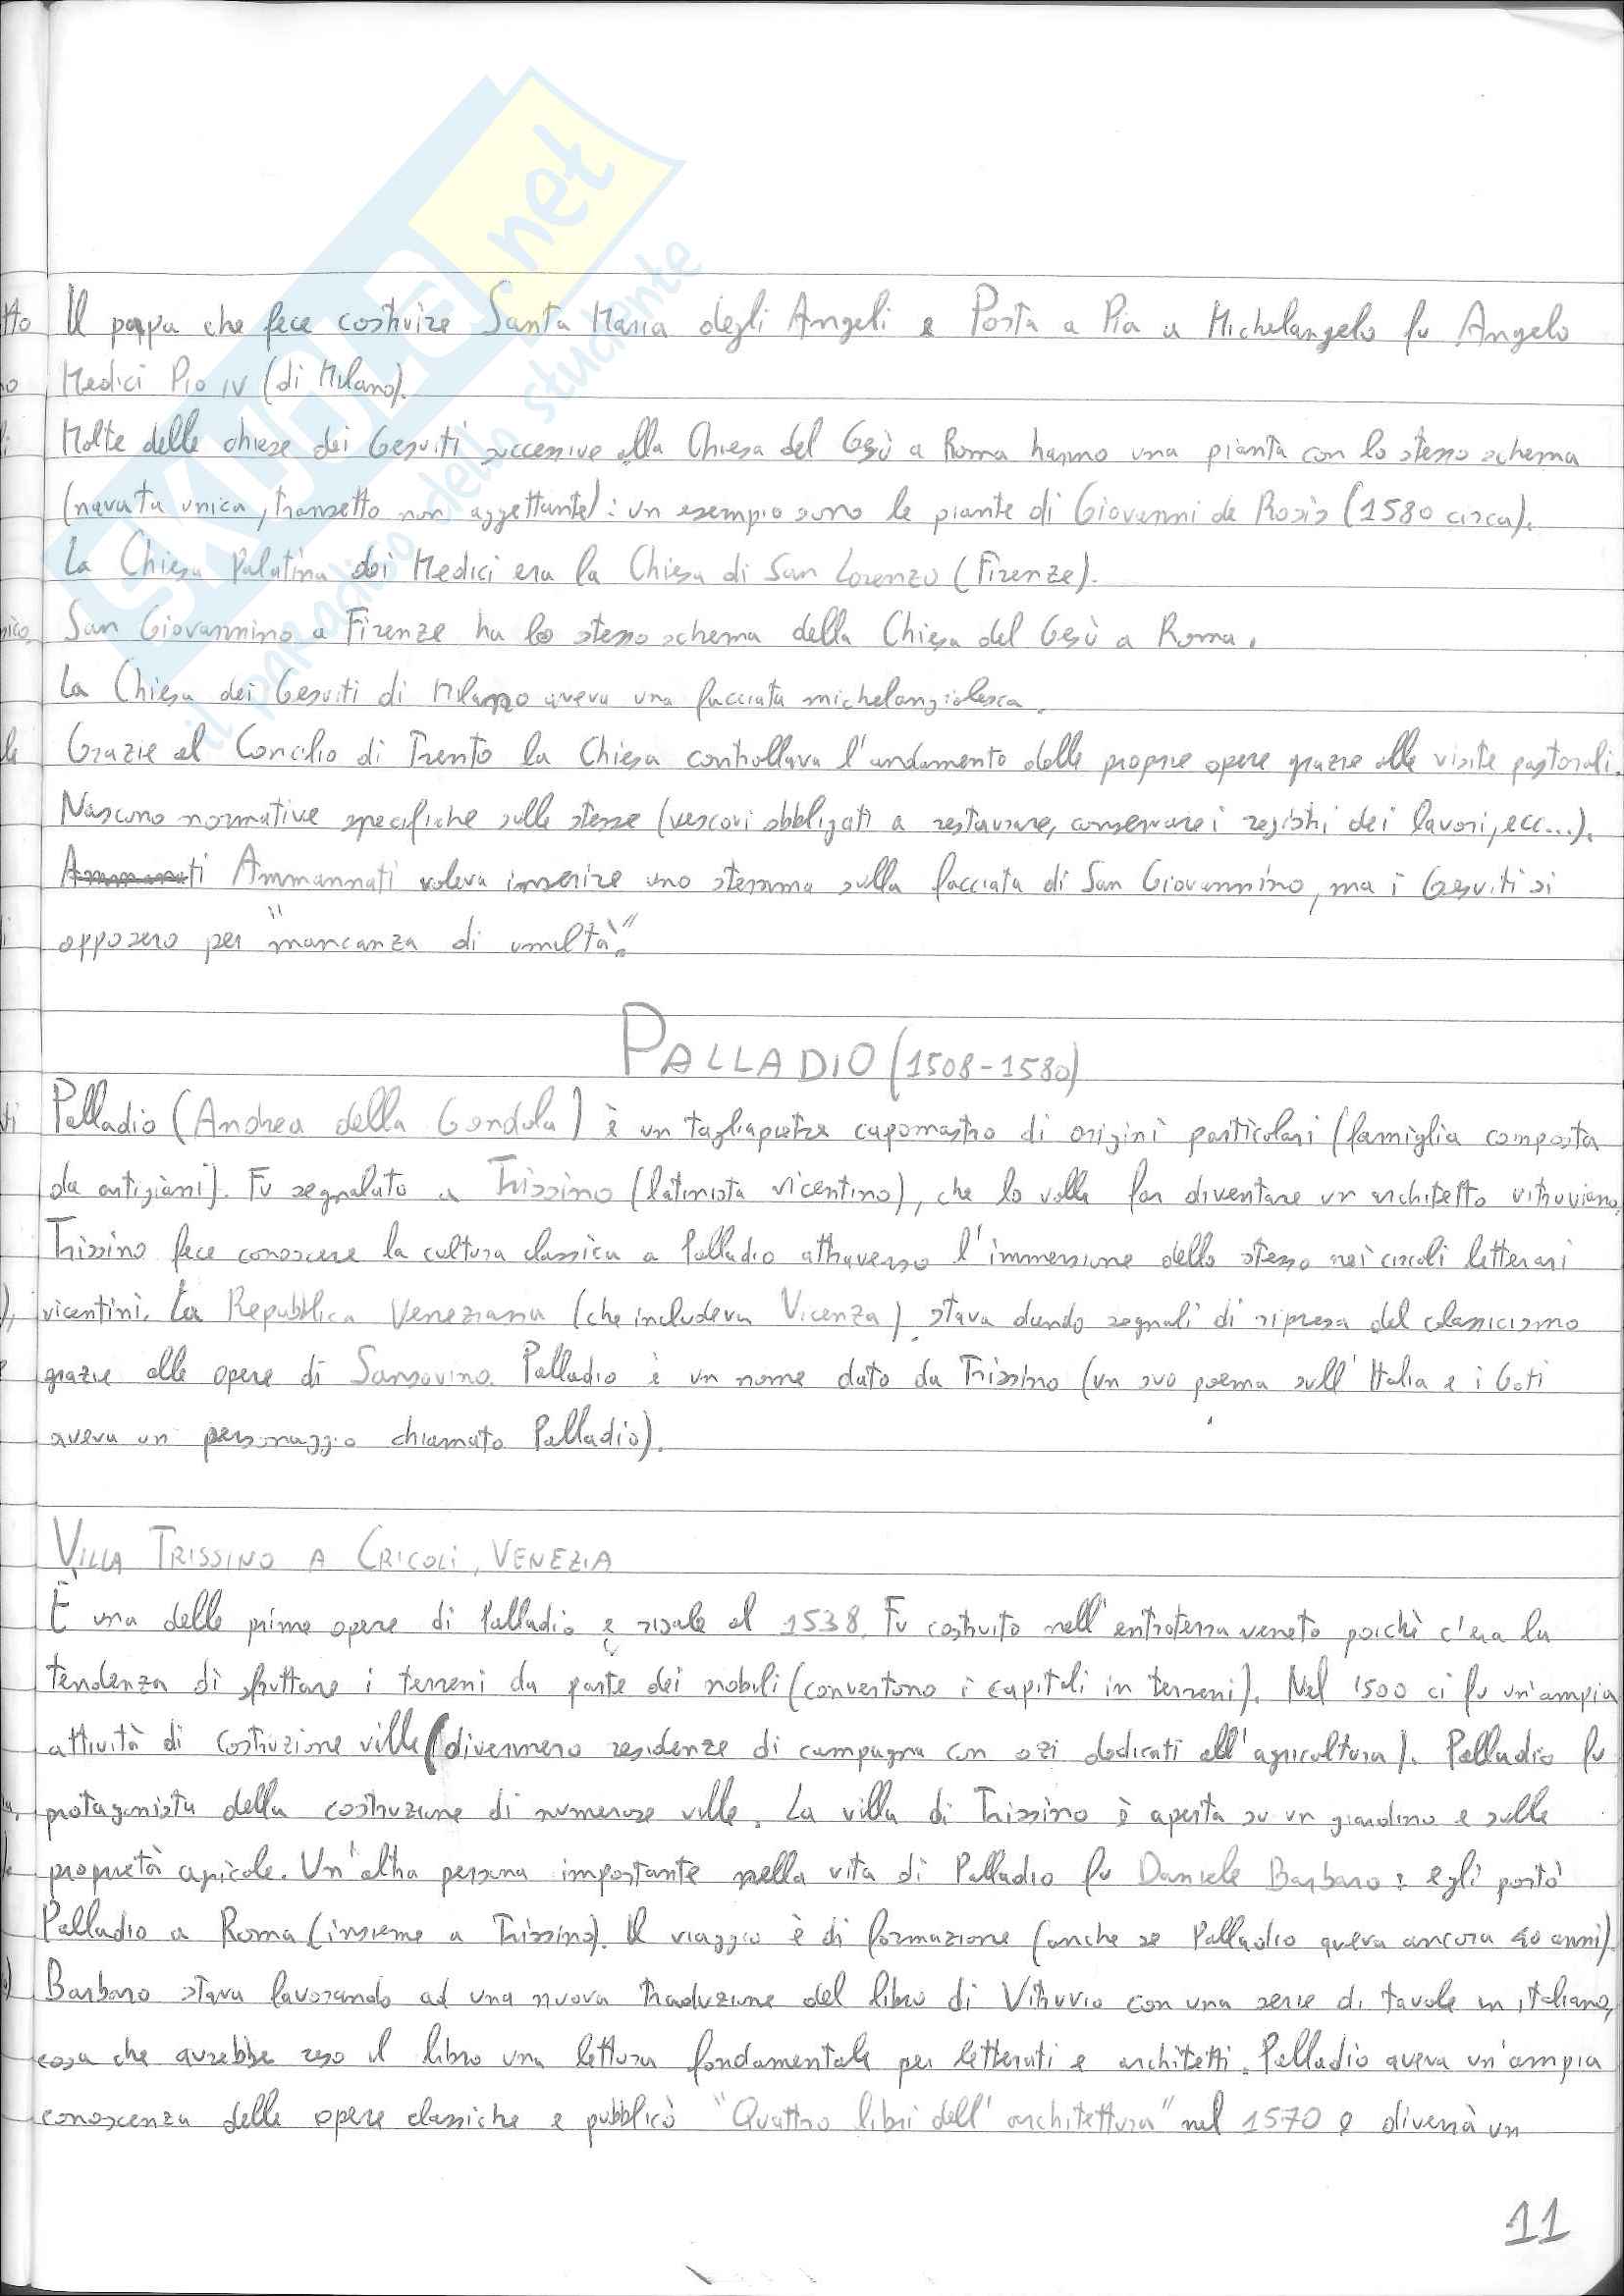 Il papa che fece costruire Santa Maria degli Angeli e Porta a Pia a Michelangelo fu Angelo
Medici Pio IV (di Milano).
Molte delle chiese dei Gesuiti successive alla Chiesa del Gesù a Roma hanno una pianta con lo stesso schema
(navata unica, transetto non aggettante): un esempio sono le piante di Giovanni de Rosis (1580 circa).
La Chiesa Palatina dei Medici era la Chiesa di San Lorenzo (Firenze).
San Giovannino a Firenze ha lo stesso schema della Chiesa del Gesù a Roma.
La Chiesa dei Gesuiti di Milano aveva una facciata michelangiolesca.
Grazie al Concilio di Trento la Chiesa controllava l'andamento delle proprie opere grazie alle visite pastorali.
Nascono normative specifiche sulle stesse (vescovi obbligati a restaurare, conservare i registri dei lavori, ecc...).
Ammannati voleva inserire uno stemma sulla facciata di San Giovannino, ma i Gesuiti si
opposero per "mancanza di umiltà".
PALLADIO (1508-1580)
Palladio (Andrea della Gondola) è un tagliapietre capomastro di origini particolari (famiglia composta
da artigiani). Fu segnalato a Trissino (latinista vicentino), che lo volle far diventare un architetto vitruviano.
Trissino fece conoscere la cultura classica a Palladio attraverso l'immersione dello stesso nei circoli letterari
vicentini. La Repubblica Veneziana (che includeva Vicenza) stava dando segnali di ripresa del classicismo
grazie alle opere di Sansovino. Palladio è un nome dato da Trissino (un suo poema sull'Italia e i Goti
aveva un personaggio chiamato Palladio).
VILLA TRISSINO A CRICOLI, VENEZIA
È una delle prime opere di Palladio e risale al 1538. Fu costruito nell'entroterra veneto poichè c'era la
tendenza di sfruttare i terreni da parte dei nobili (convertono i capitali in terreni). Nel 1500 ci fu un'ampia
attività di costruzione ville (divennero residenze di campagna con ozi dedicati all'agricoltura). Palladio fu
protagonista della costruzione di numerose ville. La villa di Trissino è aperta su un giardino e sulle
proprietà agricole. Un'altra persona importante nella vita di Palladio fu Daniele Barbaro: egli portò
Palladio a Roma (insieme a Trissino). Il viaggio è di formazione (anche se Palladio aveva ancora 40 anni).
Barbaro stava lavorando ad una nuova traduzione del libro di Vitruvio con una serie di tavole in italiano,
cosa che avrebbe reso il libro una lettura fondamentale per letterati e architetti. Palladio aveva un'ampia
conoscenza delle opere classiche e pubblicò "Quattro libri dell'architettura" nel 1570 e diverrà un
11
SKUOLA.net
il paradiso dello studente